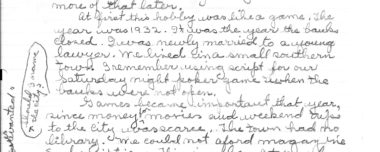 more of that later.
At first this hobby was like a game. The
year was 1932. It was the year the banks
closed. I was newly married to a young
lawyer. We lived in a small southern
town. I remember using script for our
Saturday night poker game when the
banks were not open.
Games became important that year,
since money, movies and weekend trips
to the city was scarce. The town had no
library. We could not aford magazine
should I name
the city?